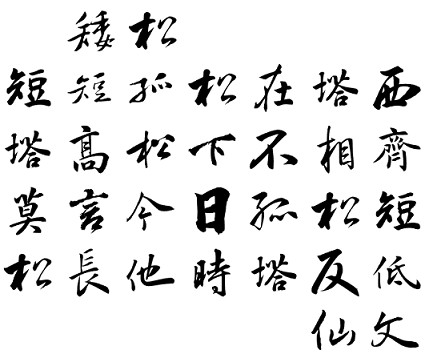 矮松
短短孤松在塔西
塔高松下不相齊
莫言今日孤松短
松長他時塔反低
仙文